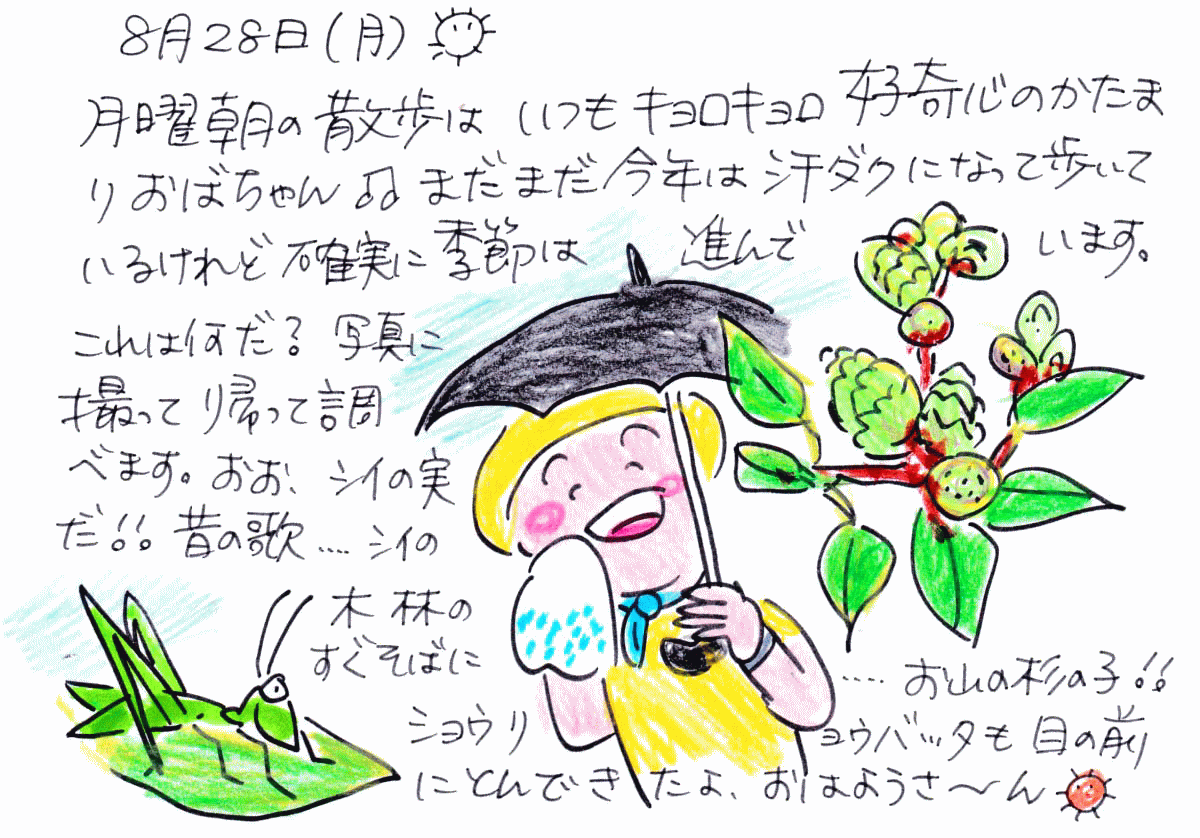 8月28日(月)
月曜朝の散歩は いつもキョロキョロ 好奇心のかたま
りおばちゃん♫ まだまだ今年は汗ダクになって歩いて
いるけれど確実に季節は 進んで います。
これは何だ？ 写真に
撮って帰って調
べます。おお、シイの実
だ!! 昔の歌‥‥シイの
木林の
すぐそばに
‥‥ お山の杉の子!!
ショウリ ョウバッタも目の前
にとんできたよ、おはようさ〜ん